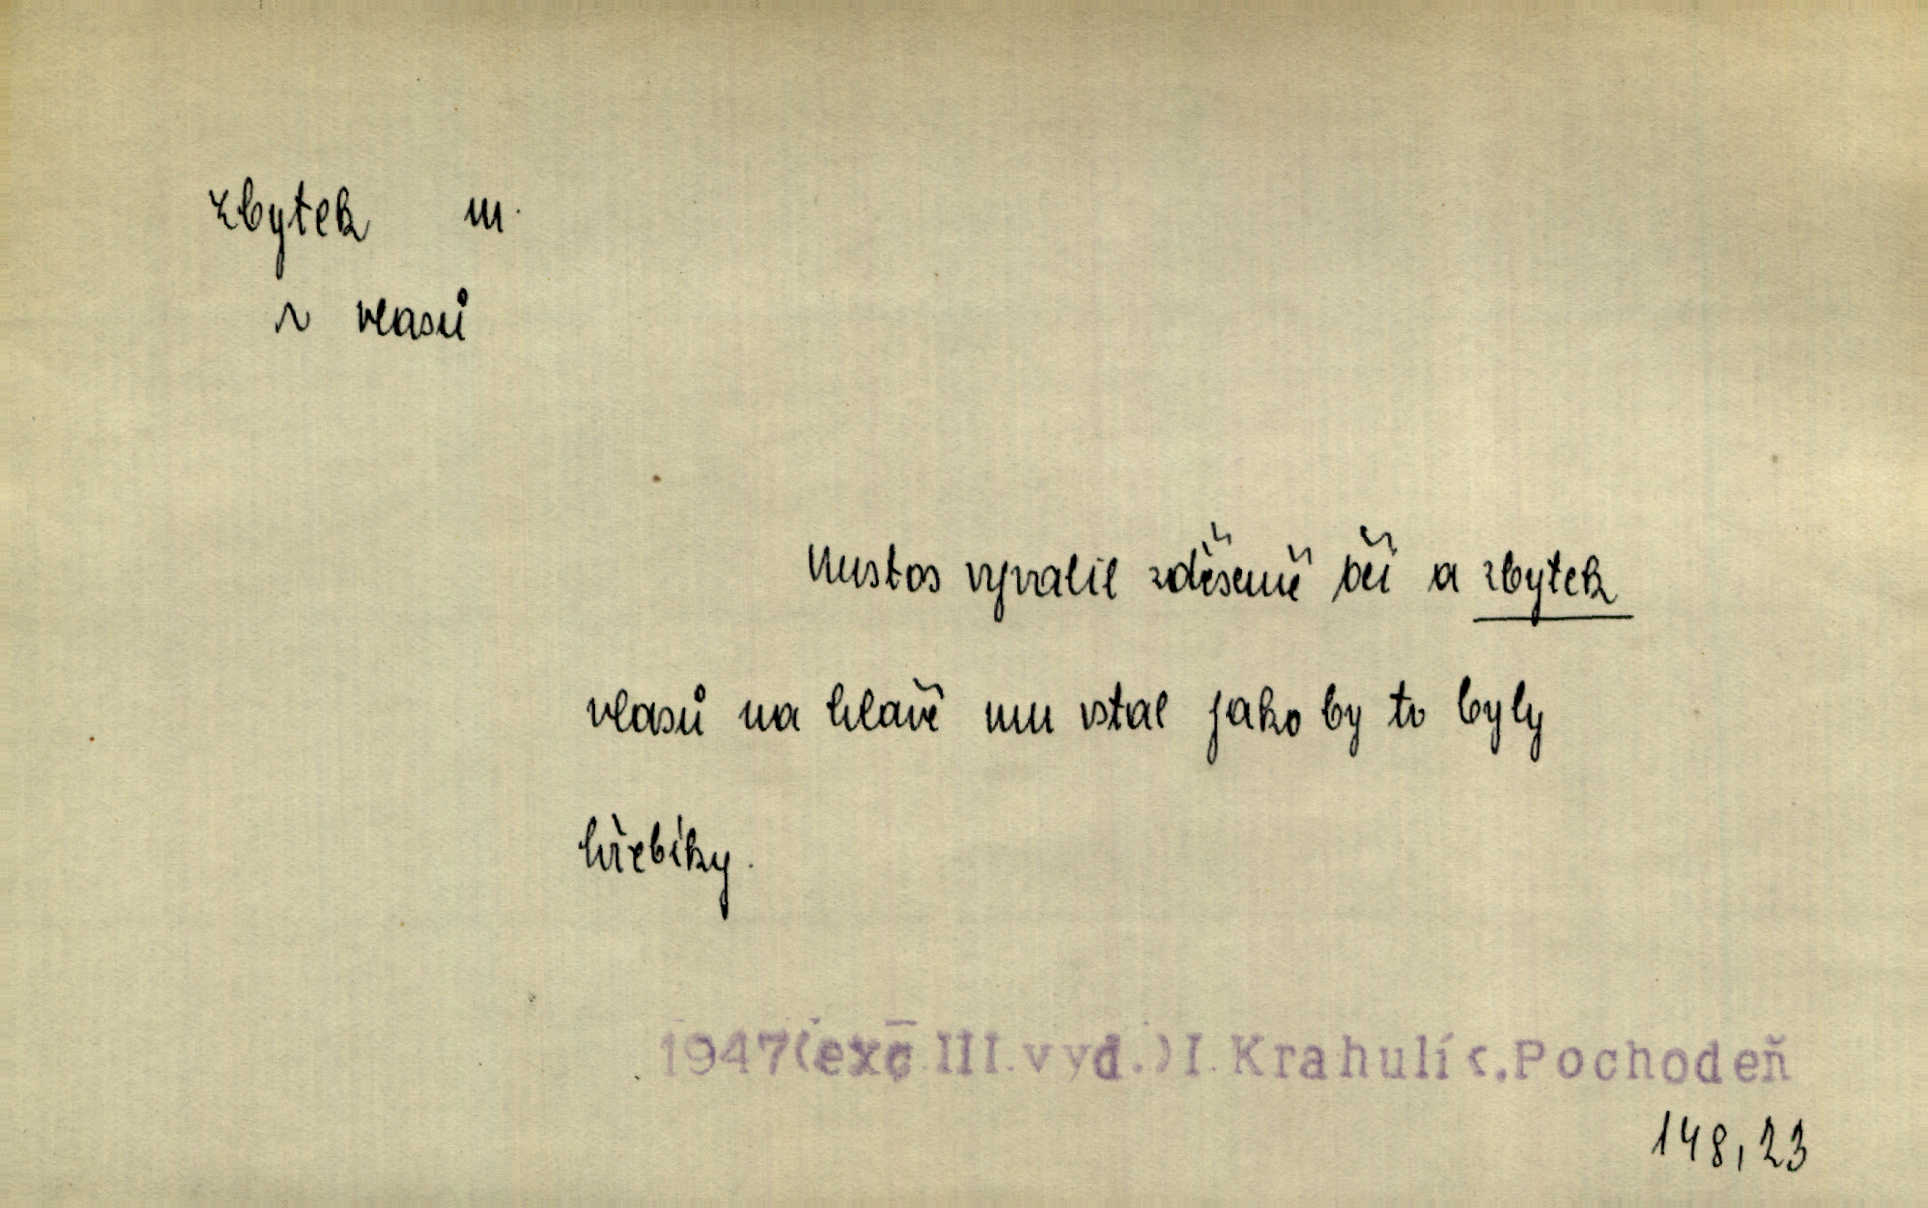 zbytek m.
~ vlasů
Nustos vyvalil zděšeně oči a zbytek
vlasů na hlavě mu vstal jako by to byly
hřebíky.
1947(exc.III.vyd.)I.Krahulík.Pochodeň
148,23